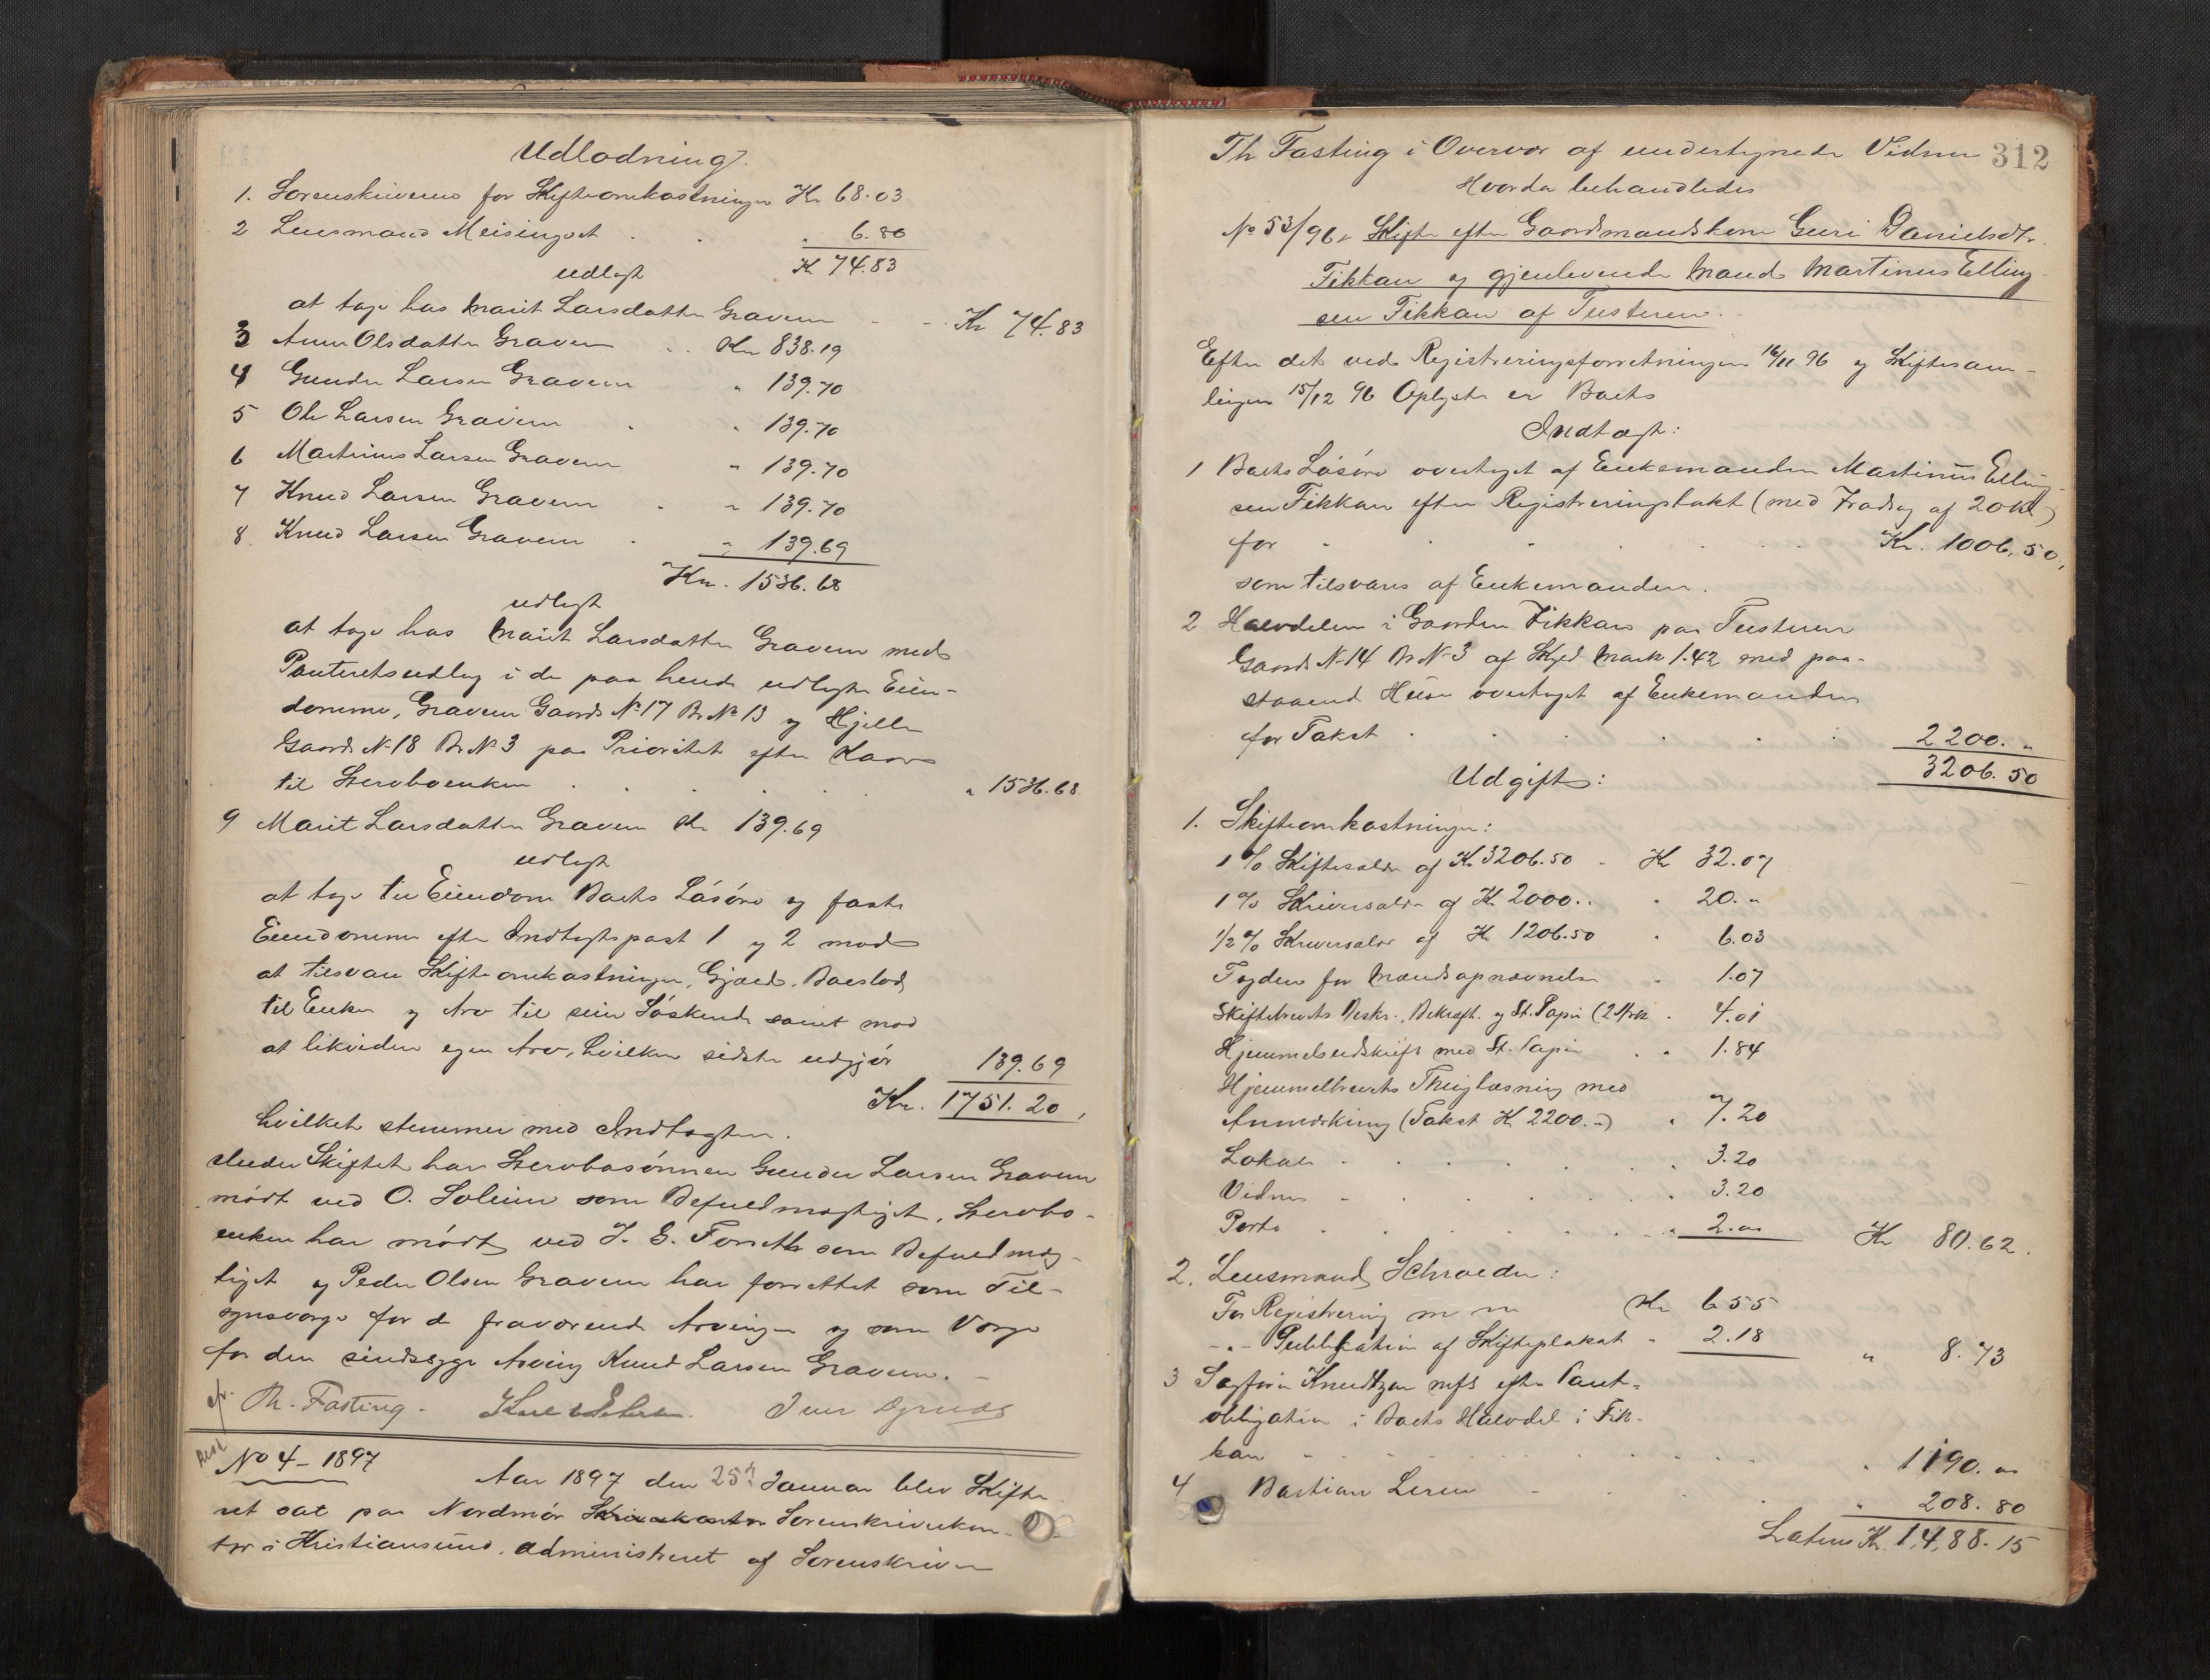 Udlodning.
1. Sorenskriveren for Skifteomkostninger Kr 68.03
2 Lensmand Meisingset . . . 6.80
Kr 74.83
udlagt
at tage hos Marit Larsdatter Gravem - - Kr 74.83
3 Anne Olsdatter Gravem . . Kr 838.19
4 Gunder Larsen Gravem " 139.70
5 Ole Larsen Gravem . " 139.70
6 Martinus Larsen Gravem " 139.70
7 Knud Larsen Gravem . " 139.70
8 Knud Larsen Gravem . " 139.69
Kr. 1536.68
udlagt
at tage hos Marit Larsdatter Gravem med
Panteretsudlæg i de paa hende udlagte Eien-
domme, Gravem Gaards No 17 Br No 13 og Hjelle
Gaards No 18 Br No 3 paa Prioritet efter Kaar
til Stervboenken . . . . . " 1536.68
9 Marit Larsdatter Gravem Kr 139.69
udlagt
at tage til Eiendom Boets Løsøre og faste
Eiendomme efter Indtægtspost 1 og 2 mod
at tilsvare Skifteomkostninger, Gjæld, Boeslod
til Enken og Arv til sine Søskende samt mod
at likvidere egen Arv, hvilken sidste udgjør 139.69
Kr. 1751.20,
hvilket stemmer med Indtægten.
Under Skiftet har Stervbosønnen Gunder Larsen Gravem
mødt ved O. Solem som Befuldmægtiget, Stervbo-
enken har mødt ved J. E. Forseth som Befuldmæg-
tiget og Peder Olsen Gravem har forrettet som Til-
synsværge for de fraværende Arvinger og som Værge
for den sindssyge Arving Knud Larsen Gravem. -
Th. Fasting.
No 4 - 1897
Aar 1897 den 25de Januar blev Skifte
ret sat paa Nordmør Sorenskriverkon-
tor i Kristiansund, administreret af Sorenskriver
312
Th Fasting i Overvær af undertegnede Vidner
Hvorda behandledes
No 53/96. Skifte efter Gaardmandskone Guri Danielsdtr.
Fikkan og gjenlevende Mand Martinus Elling
sen Fikkan af Tusteren.
Efter det ved Registreringsforretningen 16/11 96 og Skiftesam-
lingen 15/12 96 Oplyste er Boets
Indtægt:
1 Boets Løsøre overtaget af Enkemanden Martinus Elling-
sen Fikkan efter Registreringstakst (med Fradrag af 20 Kr)
for . . . . . . . Kr. 1006,50,
som tilsvares af Enkemanden.
2 Halvdelen i Gaarden Fikkan paa Tusteren
Gaards No 14 Br No 3 af Skyld Mark 1.42 med paa-
staaende Huse overtaget af Enkemanden
for Takst . . . . . . 2200. "
3206.50
Udgift:
1. Skifteomkostninger:
1 % Skiftesalær af Kr 3206.50 - Kr 32.07
1 % Skriversalær af Kr 2000.. " 20. "
1/2 % Skriversalær af Kr 1206.50 " 6.03
Fogden for Mændsopnævnelse " 1.07
Skiftebrevets Beskr., Bekræft. og St. Papir (2 Ark " 4.01
Hjemmelsudskrift med St. Papir . . " 1.84
Hjemmelbrevets Thinglæsning med
Anmærkning (Takst Kr 2200.-) " 7.20
Lokale . . . . . . . 3.20
Vidner . . . . . . . 3.20
Porto . . . . . . . " 2.00 Kr 80.62.
2. Lensmand Schrøder:
For Registrering m m Kr 6 55
-"- Publikation af Skifteplakat " 2.18 " 8.73
3 Sagfører Knudtzon mfs efter Pant-
obligation i Boets Halvdel i Fik-
kan - - . . . . . . " 1190. 00
4 Bastian Leren - . . " 208.80
Latus Kr. 1,4,88.15